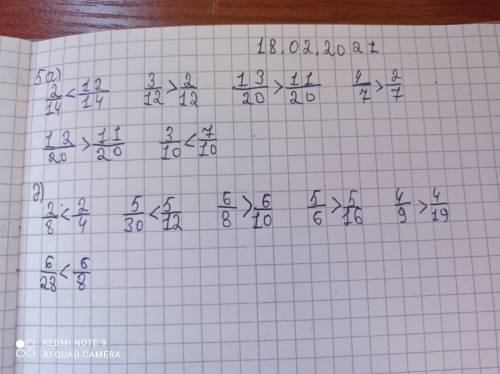 18.02.2021
5 а)
2/14 < 12/14 3/12 > 2/12 13/20 > 11/20 4/7 > 2/7
12/20 > 11/20 3/10 < 7/10
д)
2/8 < 2/4 5/30 < 5/12 6/8 > 6/10 5/6 > 5/16 4/9 > 4/19
6/28 < 6/8
REDMI NOTE 9
AI QUAD CAMERA